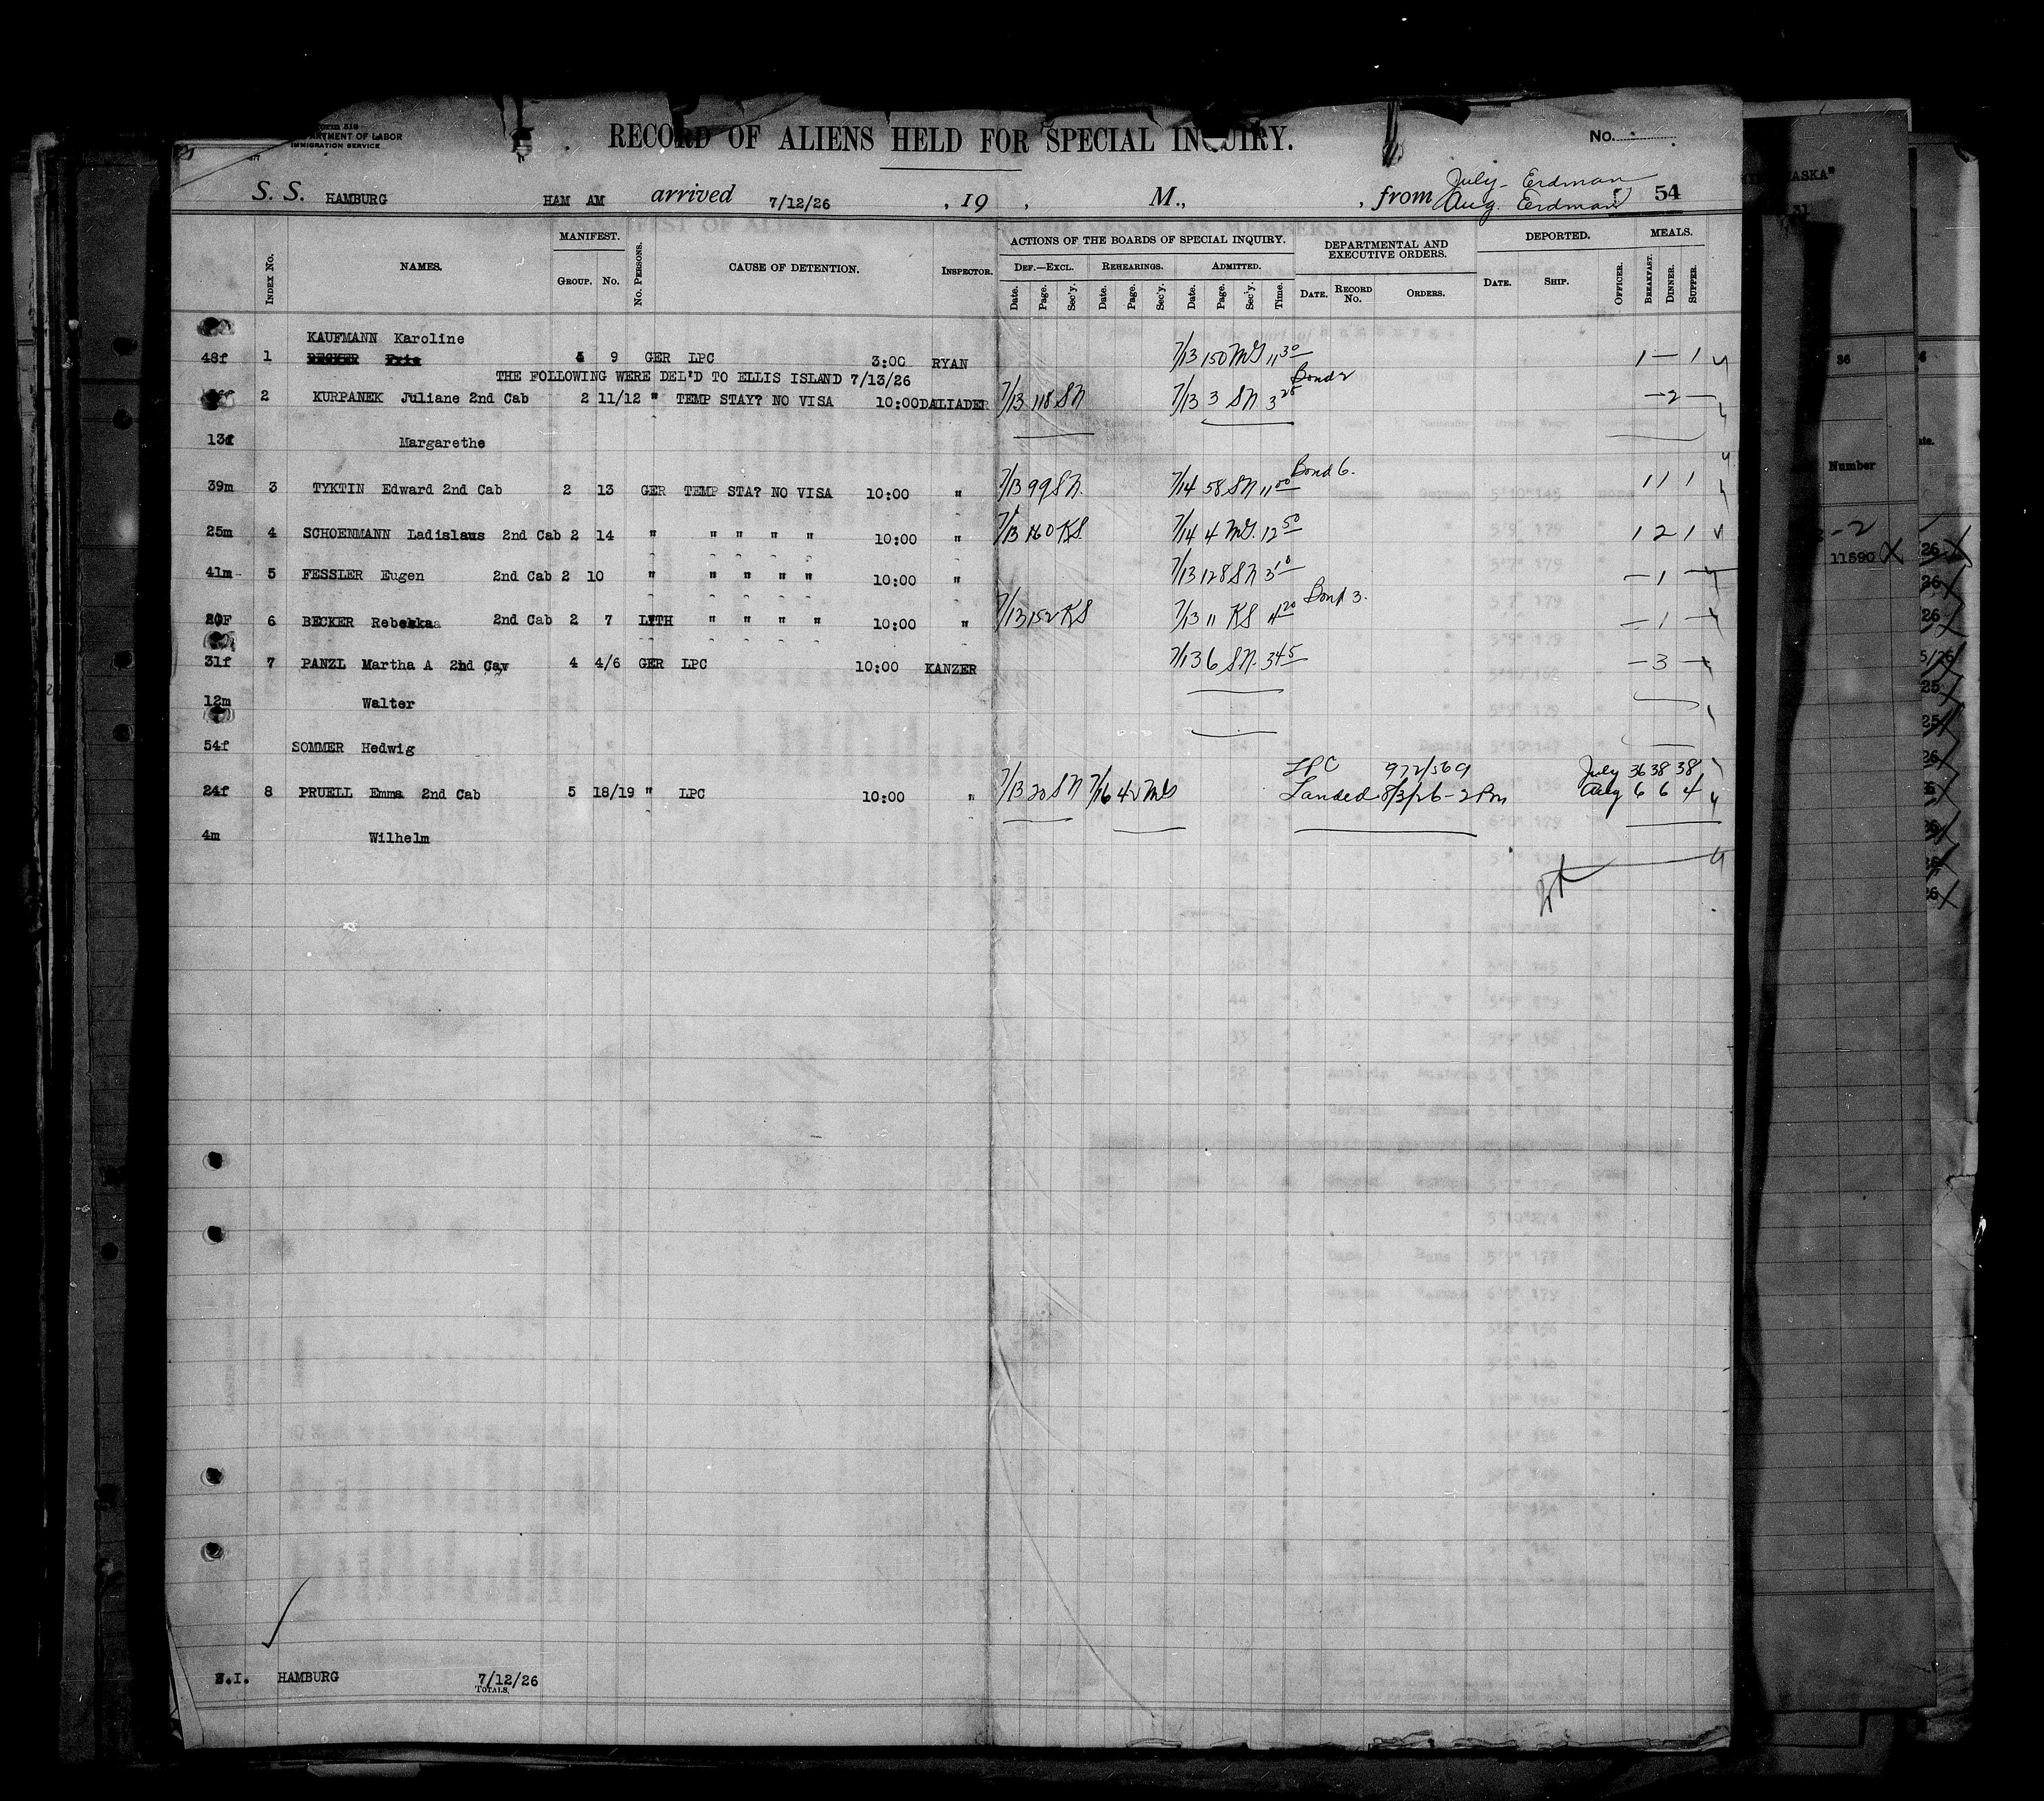 Form 518
DEPARTMENT OF LABOR
IMMIGRATION SERVICE
RECORD OF ALIENS HELD FOR SPECIAL INQUIRY.
No.
S. S. HAMBURG HAM AM arrived 7/12/26 , 19 , M., , from July - Erdman
Aug. Erdman 54
INDEX No. NAMES. MANIFEST. GROUP. No. No. PERSONS. CAUSE OF DETENTION. INSPECTOR. ACTIONS OF THE BOARDS OF SPECIAL INQUIRY. DEPARTMENTAL AND EXECUTIVE ORDERS. DEPORTED. MEALS.
DEF.—EXCL. REHEARINGS. ADMITTED.
Date. Page. Sec'y. Date. Page. Sec'y. Date. Page. Sec'y. Time. DATE. RECORD No. ORDERS. DATE. SHIP. OFFICER. BREAKFAST. DINNER. SUPPER.
KAUFMANN Karoline
48f 1 9 GER LPC 3:00 RYAN 7/13 150 MG 11 30 1 — 1
THE FOLLOWING WERE DEL'D TO ELLIS ISLAND 7/13/26
2 KURPANEK Juliane 2nd Cab 2 11/12 " TEMP STAY? NO VISA 10:00 DALIADER 7/13 118 SN 7/13 3 SN 3 25 Bond 2 — 2 —
13f Margarethe
39m 3 TYKTIN Edward 2nd Cab 2 13 GER TEMP STA? NO VISA 10:00 " 7/13 99 SN. 7/14 58 SN 11 00 Bond 6. 1 1 1
25m 4 SCHOENMANN Ladislaus 2nd Cab 2 14 " " " " " 10:00 " 7/13 160 KS 7/14 4 MG. 12 50 1 2 1
41m 5 FESSLER Eugen 2nd Cab 2 10 " " " " " 10:00 " 7/13 128 SN 3 10 — 1 —
20F 6 BECKER Rebekka 2nd Cab 2 7 LITH " " " " 10:00 " 7/13 152 KS 7/13 11 KS 4 20 Bond 3. — 1 —
31f 7 PANZL Martha A 2nd Cav 4 4/6 GER LPC 10:00 KANZER 7/13 6 SN. 3 45 — 3 —
12m Walter
54f SOMMER Hedwig
LPC 972/569 July 36 38 38
24f 8 PRUELL Emma 2nd Cab 5 18/19 " LPC 10:00 " 7/13 20 SN 7/16 42 MG Landed 8/3/26 - 2 Pm Aug 6 6 4
4m Wilhelm
S.I. HAMBURG 7/12/26
TOTALS.
ASKA"
31
36
Number
11590